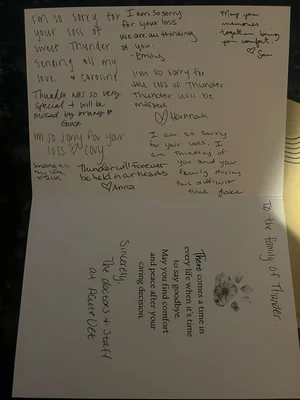 I'm so sorry for
your loss of
sweet Thunder
sending all my
love ♡ Caroline
I am so sorry
for your loss.
We are all thinking
of you
May you
memories
together bring
you comfort.
♡ Sam
I'm so sorry for
the loss of Thunder
Thunder will be
missed.
♡ Hannah
Thunder was so very
special + will be
missed by
Im so sorry for your
loss ♡ Cory
Sending all
my love
Thunder will forever
be held in our hearts
♡ Anna
I am so sorry
for your loss. I
am thinking of
you and your
family during
this difficult
time
To the family of Thunder...
There comes a time in
every life when it's time
to say goodbye.
May you find comfort
and peace after your
caring decision.
Sincerely,
The doctors + staff
at